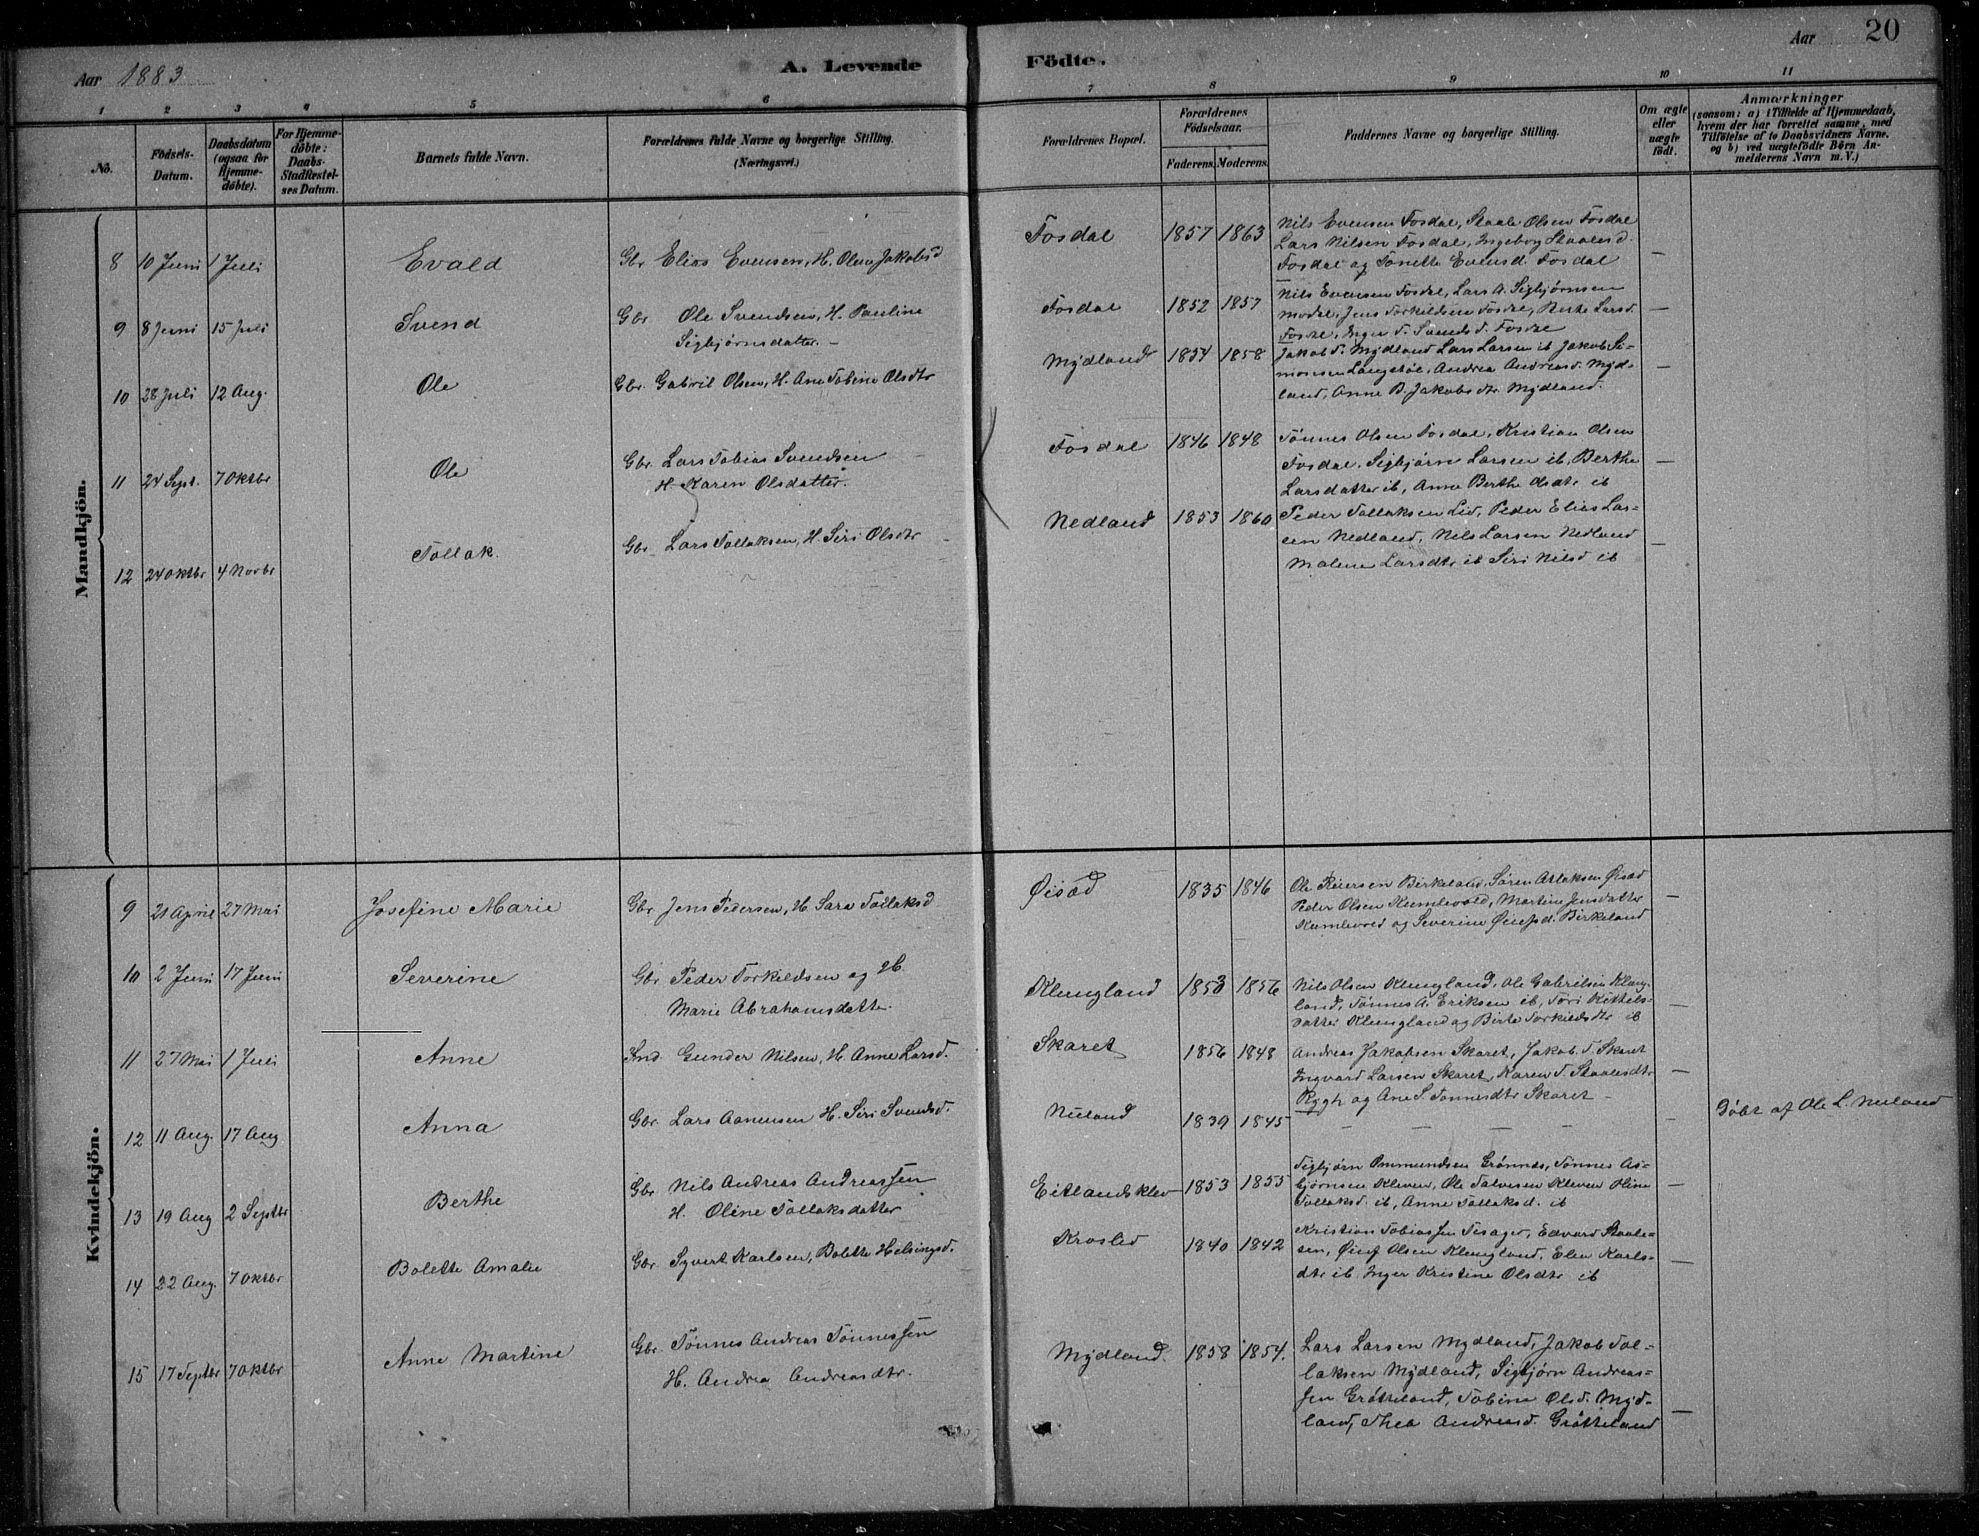 Aar 1883
A. Levende
Födte.
Aar
20
1 2 3 4 5 6 7 8 9 10 11
No.
Födsels-
Datum.
Daabsdatum
(ogsaa for
Hjemme-
døbte).
For Hjemme-
døbte:
Daabs-
Stadfæstel-
ses Datum.
Barnets fulde Navn.
Forældrenes fulde Navne og borgerlige Stilling.
(Næringsvei.)
Forældrenes Bopæl.
Forældrenes
Födselsaar.
Faderens. Moderens.
Faddernes Navne og borgerlige Stilling.
Om ægte
eller
uægte
födt.
Anmærkninger
(saasom: a) i Tilfælde af Hjemmedaab,
hvem der har forrettet samme, med
Tilföielse af to Daabsvidners Navne.
og b) ved uægtefödte Börn An-
melderens Navn m.V.)
Mandkjön.
8 10 Juni 1 Juli Evald Gbr Elias Evensen, H. Olene Jakobsd Fosdal 1857 1863
Nils Evensen Fosdal, Staale Olsen Fosdal
Lars Nilsen Fosdal, Ingeborg Staalesd.
Fosdal og Tonette Evensd Fosdal —
9 8 Juni 15 Juli Svend Gbr Ole Svendsen, H. Pauline
Sigbjørnsdatter. — Fosdal 1852 1857
Nils Evensen Fosdal, Lars A. Sigbjørnsen
Modal, Jens Torkildsen Fosdal, Berte Larsd.
Fosdal, Inger S. Svends d. Fosdal —
10 28 Juli 12 Aug. Ole Gbr. Gabriel Olsen, H. Ane Tobine Olsdtr Mydland 1854 1858
Jakob T. Mydland Lars Larsen ib Jakob Si-
monsen Langstøl, Andrea Andreas d. Myd-
land, Anne B. Jakobs dtr. Mydland. —
11 24 Sept. 7 Oktbr Ole Gbr. Lars Tobias Svendsen
H. Karen Olsdatter. Fosdal 1846 1848
Tønnes Olsen Fosdal, Kristian Olsen
Fosdal, Sigbjørn Larsen ib, Berthe
Larsdatter ib, Anne Berthe Olsdtr ib —
12 24 Oktbr 4 Novbr Tollak Gbr. Lars Tollaksen, H. Siri Olsdtr Nedland 1853 1860
Peder Tollaksen Lid, Peder Elias Lar-
sen Nedland, Nils Larsen Nedland
Malene Larsdtr ib Siri Nilsd ib —
Kvindekjön.
9 21 April 27 Mai Josefine Marie Gbr Jens Pedersen, H. Sara Tollaksd Øisæd 1835 1846
Ole Reiersen Birkeland, Søren Atlaksen Øisæd
Peder Olsen Kumlevold, Martine Jensdatter
Kumlevold og Severine Øiufsd. Birkeland —
10 2 Juni 17 Juni Severine Gbr Peder Torkildsen og H.
Marie Abrahamsdatter. Klungland 1853 1856
Nils Olsen Klungland, Ole Gabrielsen Klung-
land, Tønnes A. Eriksen ib, Tori Kittels-
datter Klungland og Birte Torkildsdtr ib —
11 27 Mai 1 Juli Anne Ind Gunder Nilsen, H. Anne Larsd. Skaret 1856 1848
Andreas Jakobsen Skaret, Jakob T. Skaret
Ingvard Larsen Skaret, Karen T. Staalesdtr
Rygh og Ane S. Tønnesdtr Skaret —
12 11 Aug. 17 Aug Anna Gbr. Lars Aanensen H. Siri Svendsd. Nuland 1839 1845 — — — — —
Døbt af Ole L. Nuland
13 19 Aug 2 Septbr Berthe Gbr Nils Andreas Andreassen
H. Oline Tollaksdatter Eitlandsklev 1853 1855
Sigbjørn Ommundsen Grønnes, Tønnes As-
bjørnsen Kleven, Ole Salvesen Kleven Oline
Tollaksd. ib, Anne Tollaksd. ib —
14 22 Aug. 7 Oktbr Bolette Amalie Gbr Syvert Karlsen, Bolette Helsingsd. Kroslid 1840 1842
Kristian Tobiassen Tisager, Edvard Staale-
sen, Øiuf Olsen Klungland, Elen Karls-
dtr ib Inger Kristine Olsdtr ib —
15 17 Septbr 7 Oktbr Anne Martine Gbr. Tønnes Andreas Tønnessen
H. Andrea Andreasdtr. Mydland. 1858 1854.
Lars Larsen Mydland, Jakob Tol-
laksen Mydland, Sigbjørn Andreas-
sen Grøtteland, Tobine Olsd. Myd-
land, Thea Andreasd. Grøtteland —